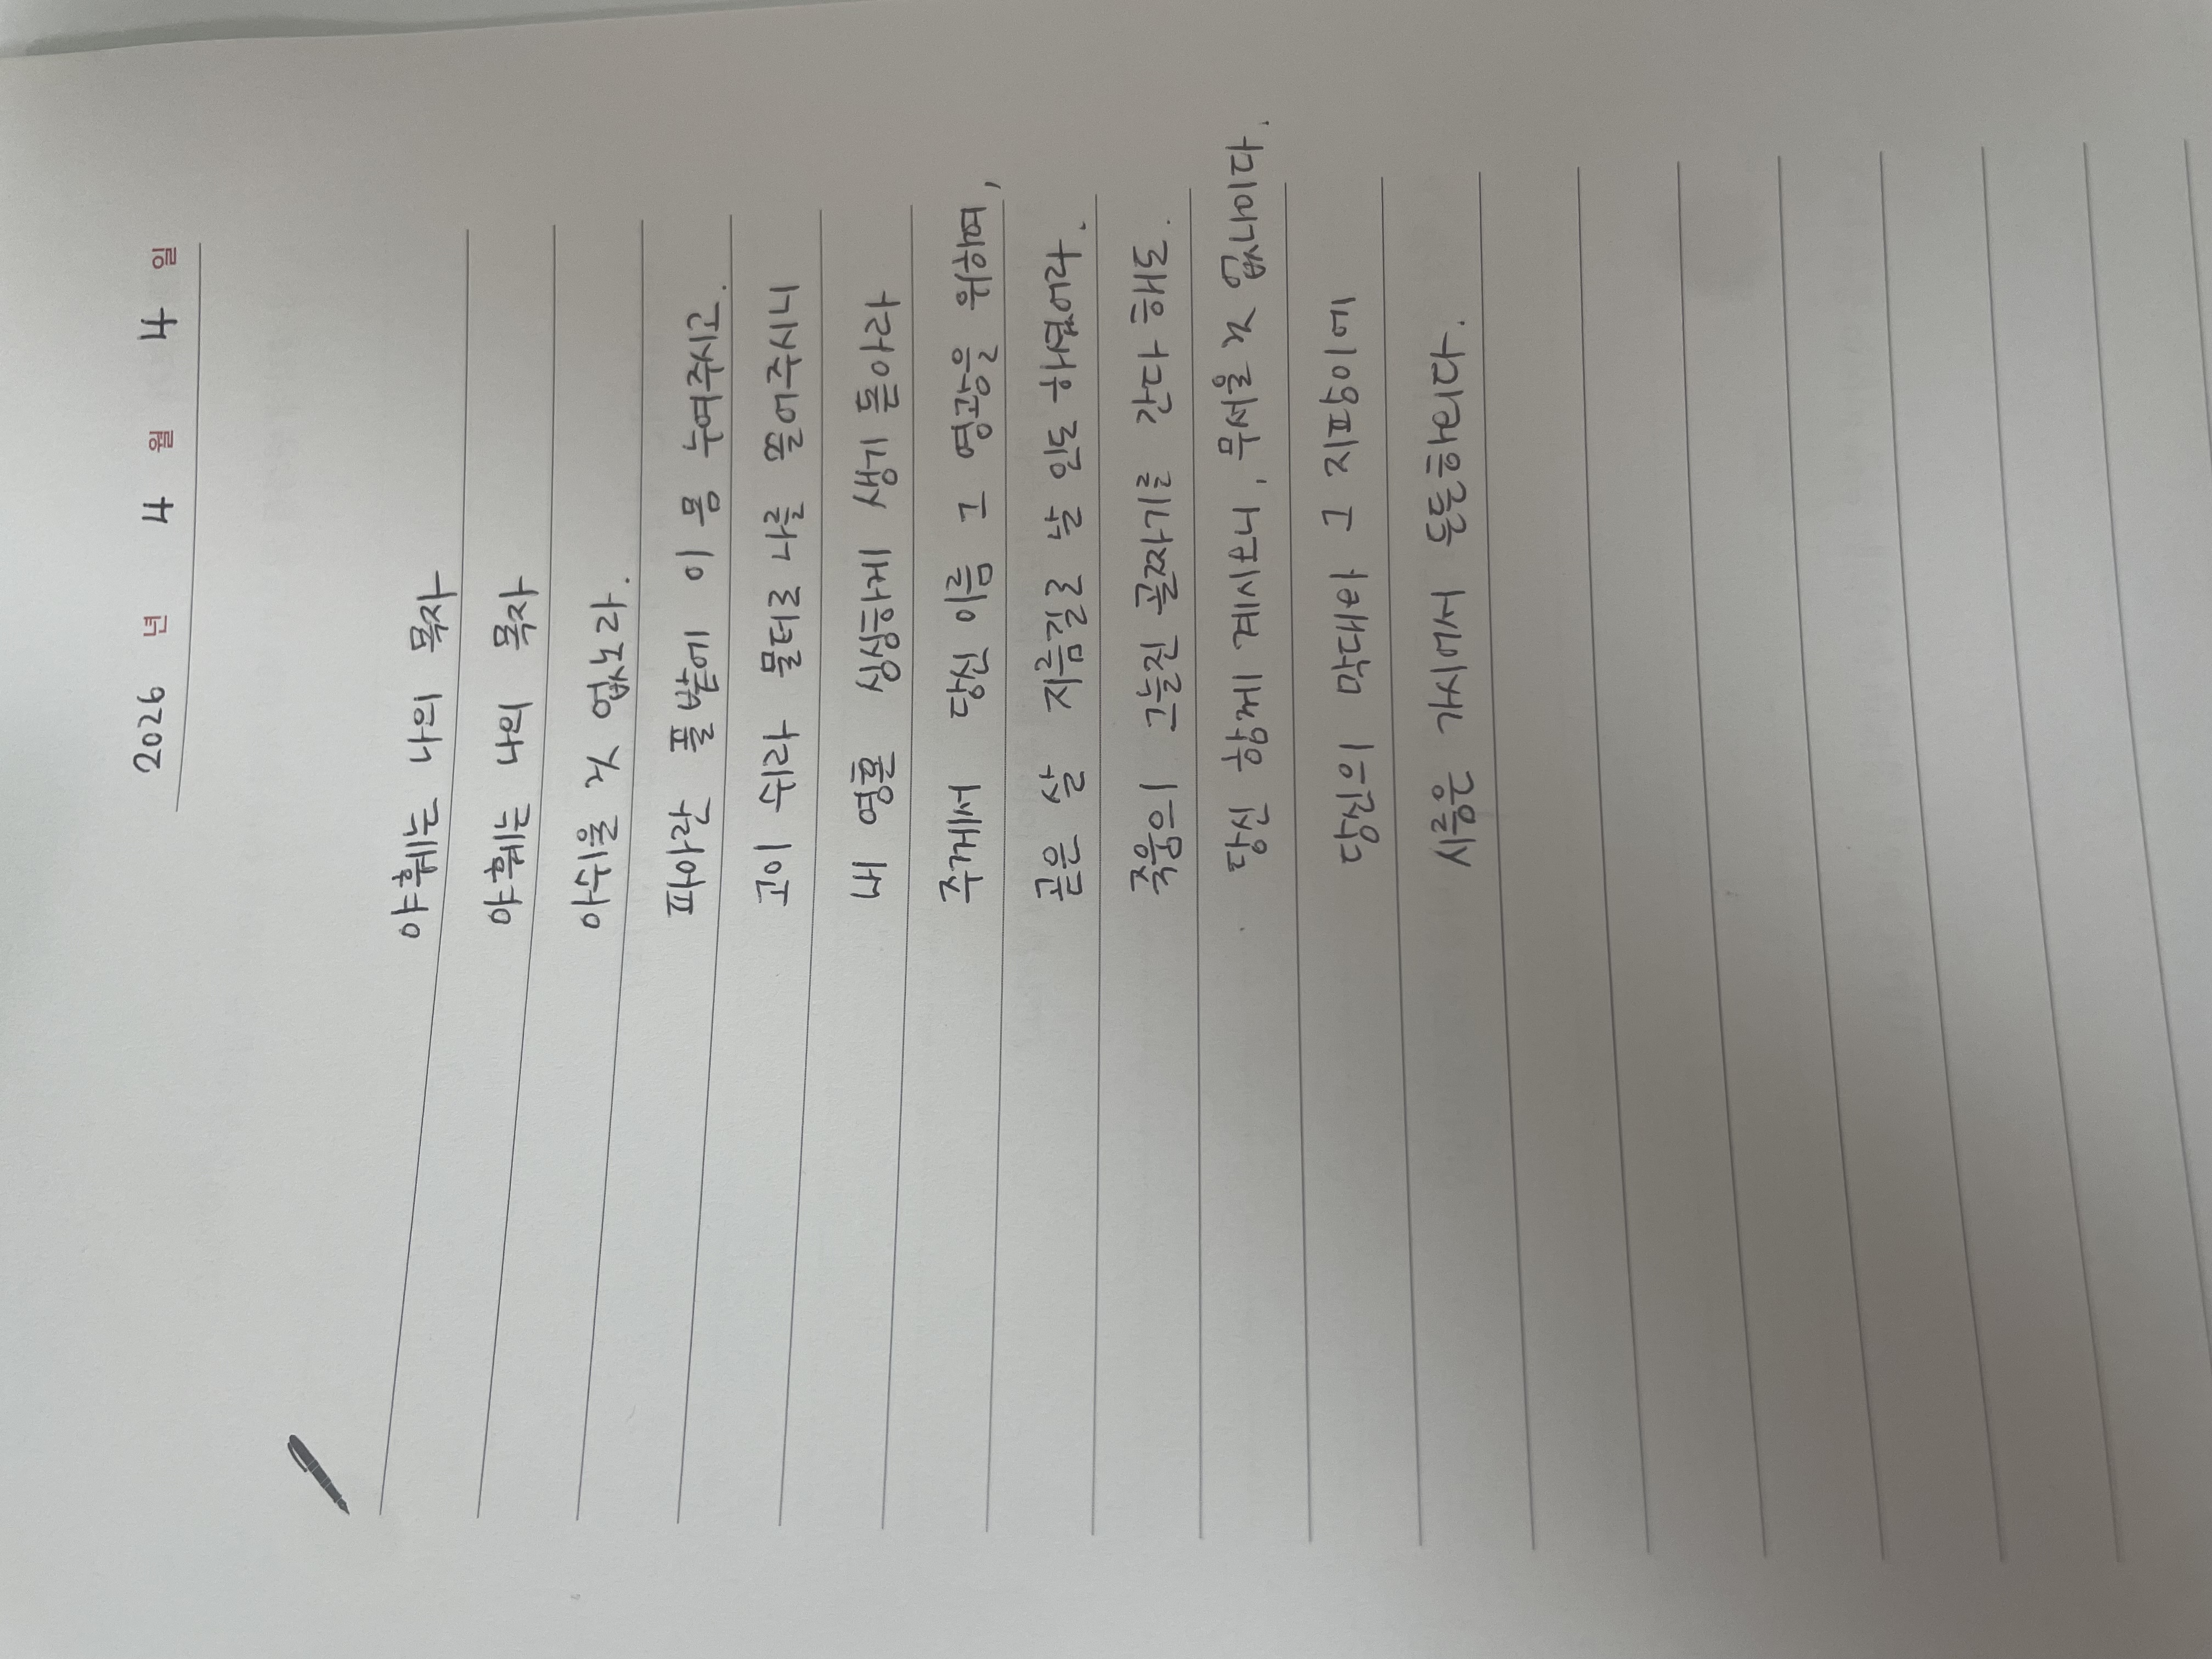 2026 년 4 월 4 일
야훼는 나의 목자
야훼는 나의 목자
아쉬울 것 없노라.
파아란 풀밭에 이 몸 누여주시고.
고이 쉬라 물터로 나를 끌어주시니
내 영혼 싱싱하게 생기 돋아라
주께서 당신 이름 그 영광을 위하여,
곧은 살 지름길로 날 인도 하셨어라.
죽음의 그늘진 골짜기를 간다 해도.
당신 함께 계시오니, 무서울 것 없나이다.
당신의 막대와 그 지팡이에
시름은 가시어서 든든하외다.